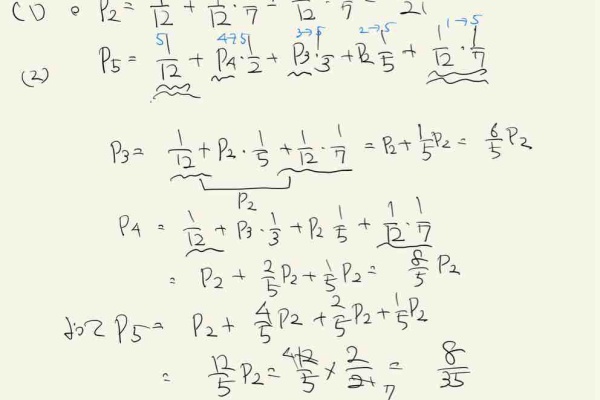 (1) P₂ = 1/12 + 1/12 · 1/7 = 1/12 · 7 = 21
5 4→5 3→5 2→5 1→5
(2) P₅ = 1/12 + P₄ · 1/2 + P₃ · 1/3 + P₂ 1/5 + 1/12 · 1/7
P₃ = 1/12 + P₂ · 1/5 + 1/12 · 1/7 = P₂ + 1/5 P₂ = 6/5 P₂
P₂
P₄ = 1/12 + P₃ · 1/3 + P₂ 1/5 + 1/12 · 1/7
= P₂ + 2/5 P₂ + 1/5 P₂ = 8/5 P₂
よって P₅ = P₂ + 4/5 P₂ + 2/5 P₂ + 1/5 P₂
= 12/5 P₂ = 4 12/5 × 2/21 7 = 8/35